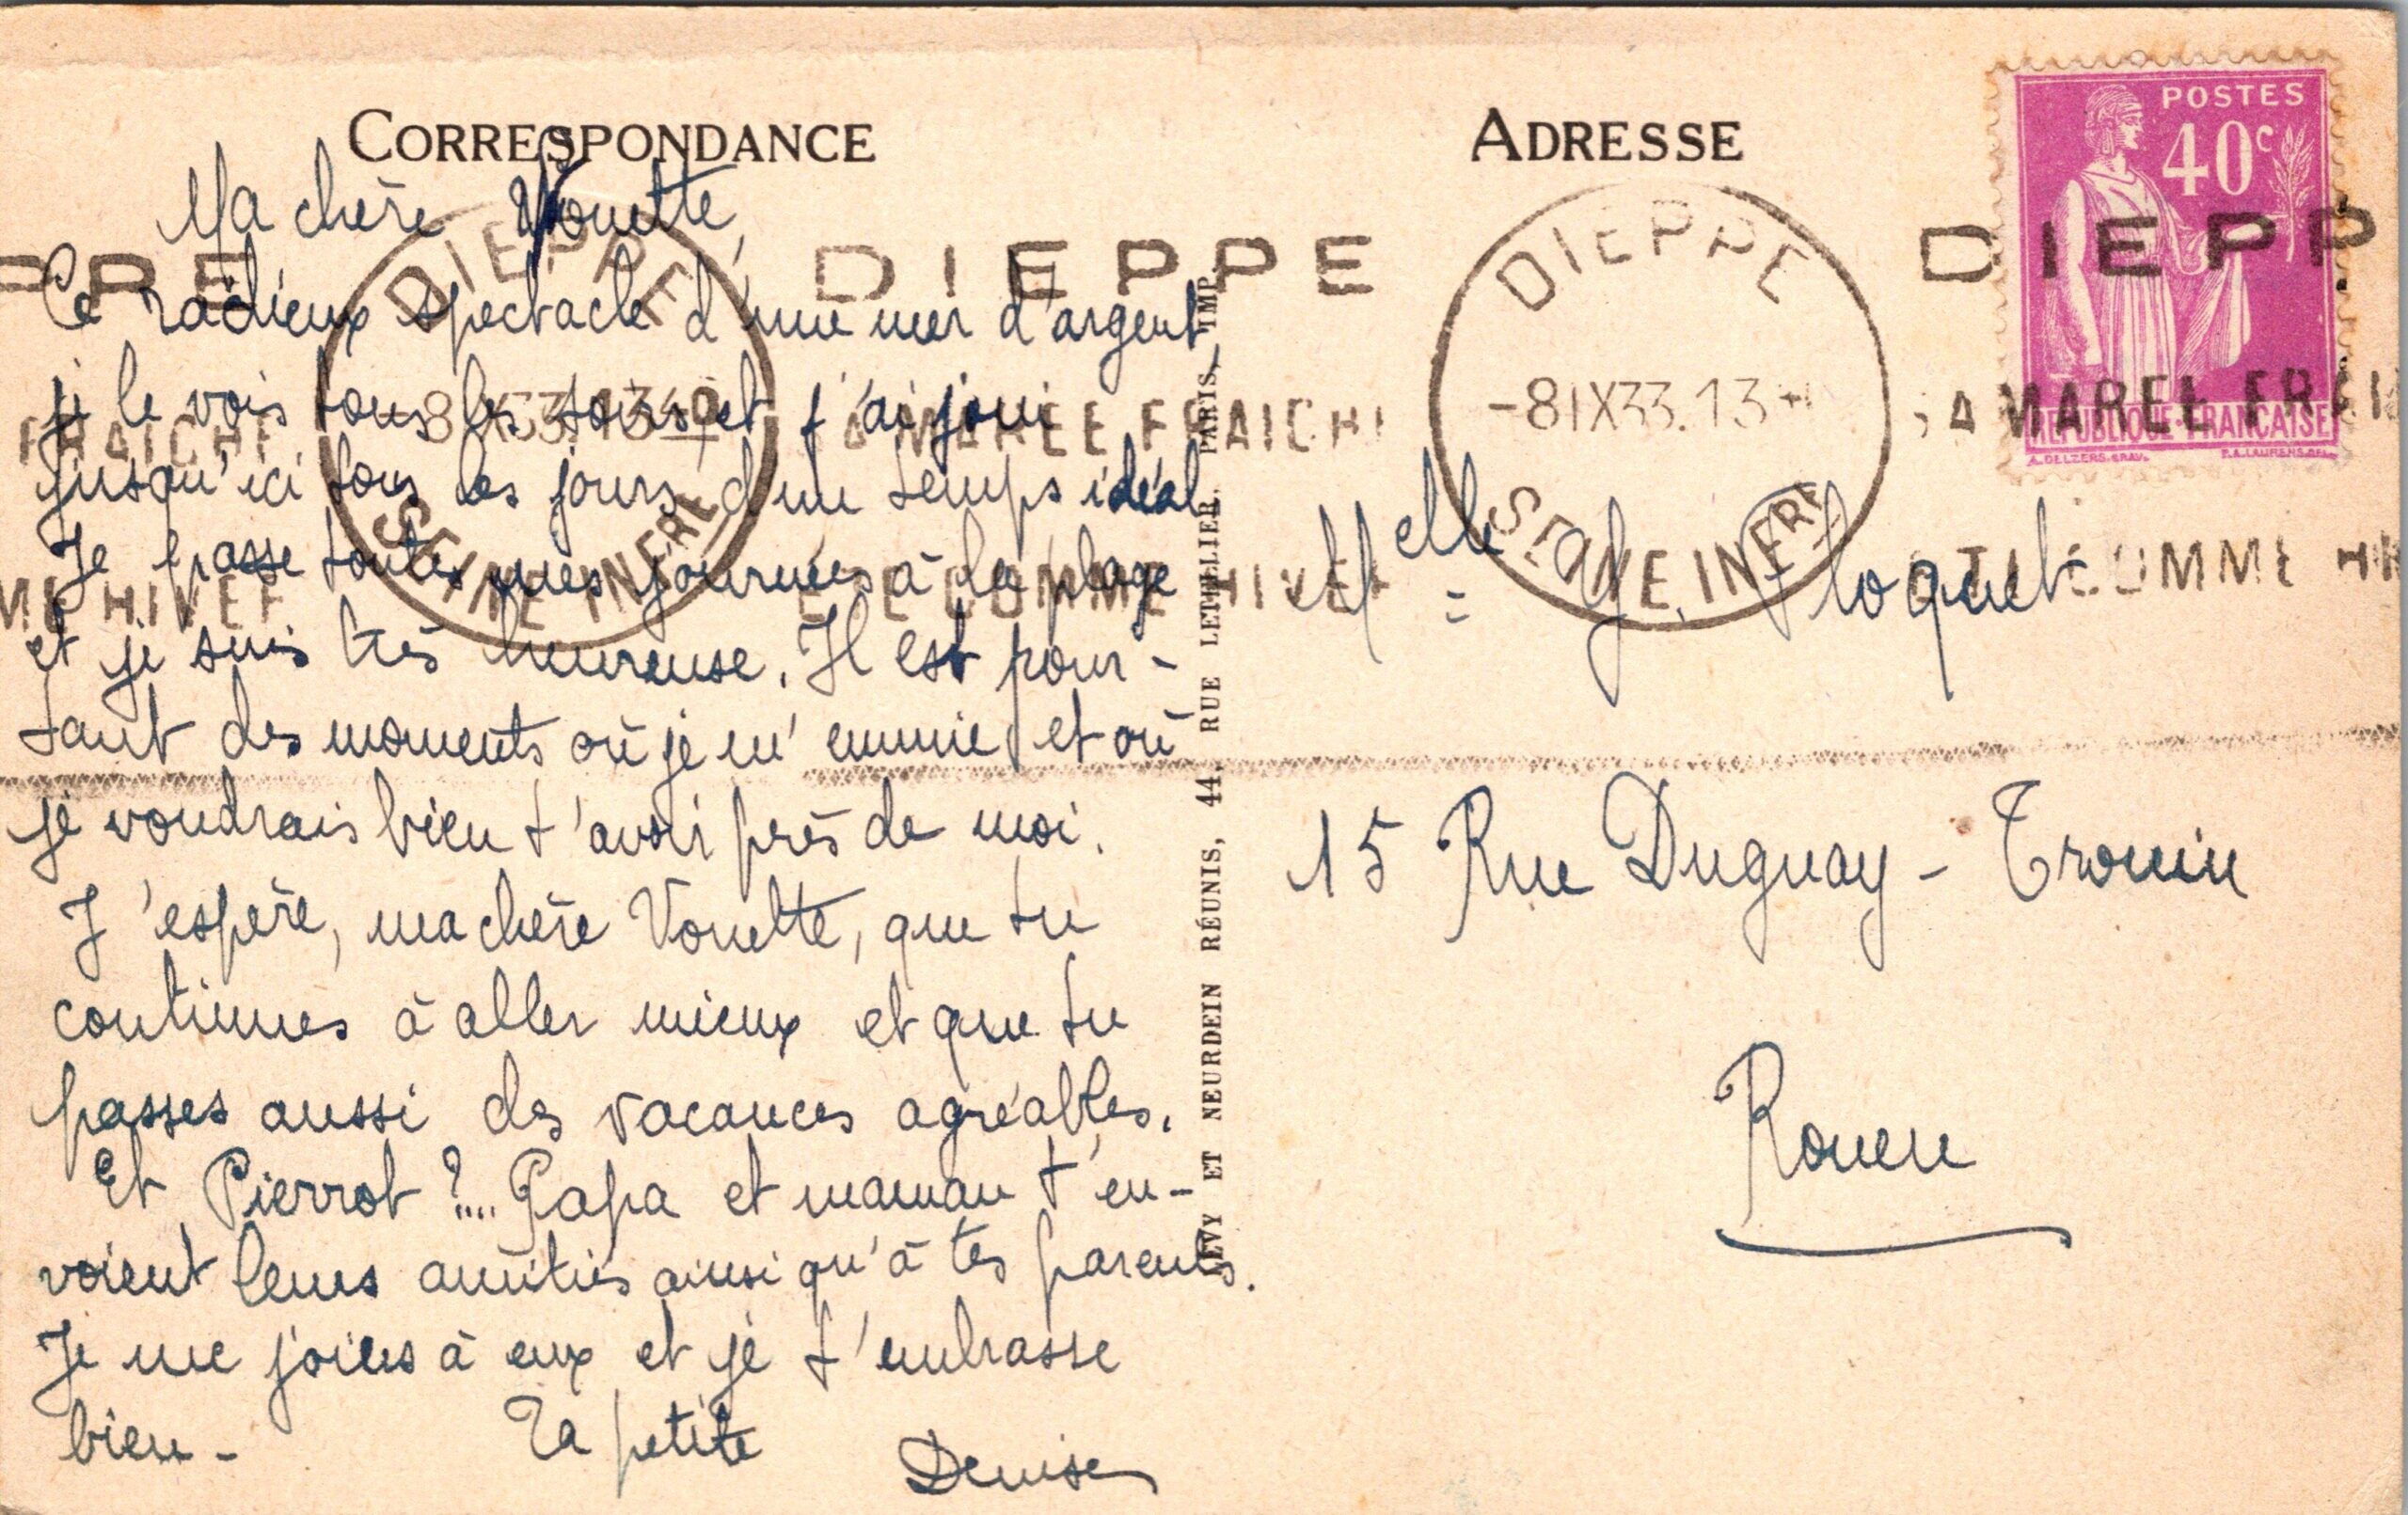 CORRESPONDANCE
Ma chère Vonette,
Ce radieux spectacle d'une mer d'argent
je le vois tous les soirs et j'ai joui
jusqu'ici tous les jours d'un temps idéal
Je passe toutes mes journées à la plage
et je suis très heureuse. Il est pour-
tant des moments où je m'ennuie et où
je voudrais bien t'avoir près de moi.
J'espère, ma chère Vonette, que tu
continues à aller mieux et que tu
passes aussi des vacances agréables.
Et Pierrot ?.... Papa et maman t'en-
voient leurs amitiés ainsi qu'à tes parents.
Je me joins à eux et je t'embrasse
bien -
Ta petite
Denise
LÉVY ET NEURDEIN RÉUNIS, 44, RUE LETELLIER, PARIS, IMP.
ADRESSE
Melle Y. Floquet
15 Rue Duguay - Trouin
Rouen
POSTES
40c
REPUBLIQUE·FRANÇAISE
DIEPPE
-8 IX 33. 13
SEINE INFRE
DIEPPE
SEINE INFRE
PPE
FRAICHE
ME HIVER
DIEPPE
SA MAREE FRAICHE
ETE COMME HIVER
DIEPP
SA MAREE FRAI
ETE COMME HI